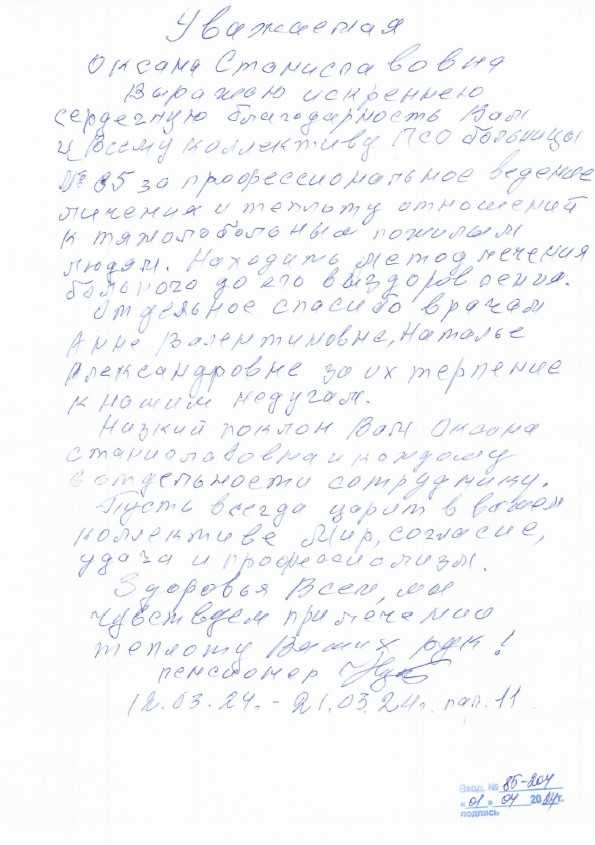 Уважаемая
Оксана Станиславовна
Выражаю искреннею
сердечную благодарность Вам
и Всему коллективу ПСО больницы
№ 85 за профессиональное ведение
личения и теплоту отношений
к тяжолобольным пожилым
людям. Находить метод лечения
больного до его выздоровления.
Отдельное спасибо врачам
Анне Валентиновне, Наталье
Александровне за их терпение
к нашим недугам.
Низкий поклон Вам Оксана
Станиславовна и каждому
в отдельности сотруднику.
Пусть всегда царит в вашем
коллективе Мир, согласие,
удача и професиолизм.
Здоровья Всем, мы
чувствуем при лечении
теплоту Ваших рук!
пенсионер
12.03.24. - 21.03.24г. пал. 11
Вход. № 85-204
«01» 04 2024г.
подпись